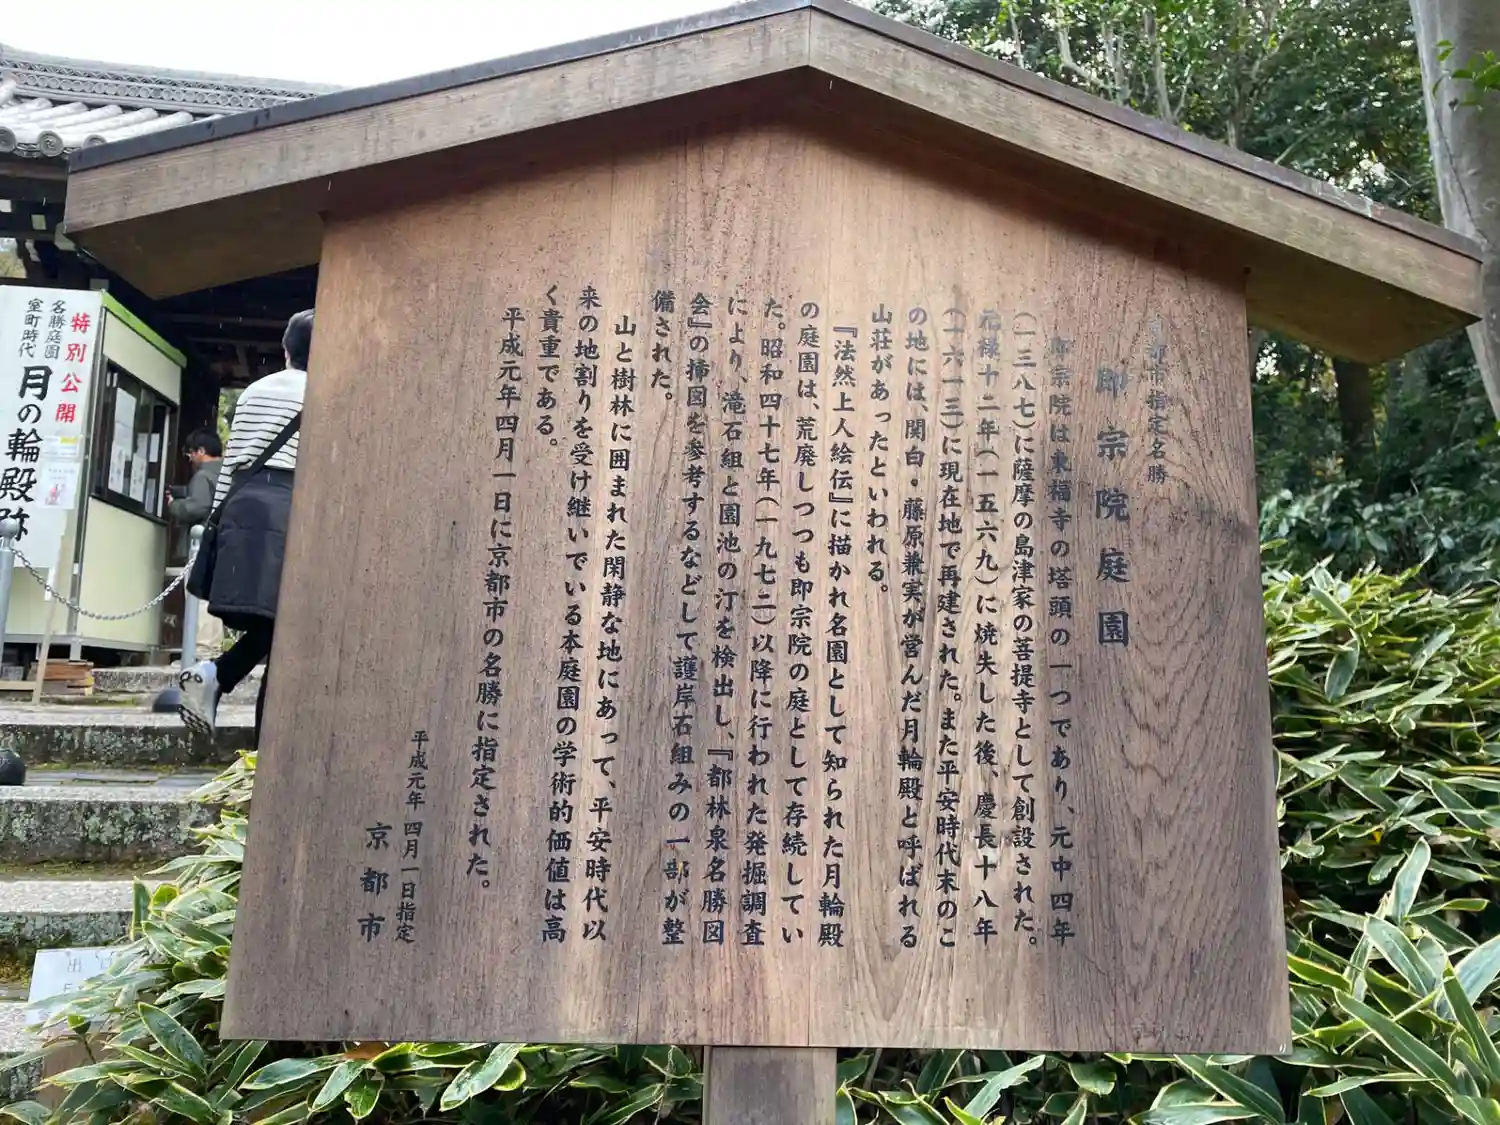 京都市指定名勝
即宗院庭園
即宗院は東福寺の塔頭の一つであり、元中四年
（一三八七）に薩摩の島津家の菩提寺として創設された。
元禄十二年（一五六九）に焼失した後、慶長十八年
（一六一三）に現在地で再建された。また平安時代末のこ
の地には、関白・藤原兼実が営んだ月輪殿と呼ばれる
山荘があったといわれる。
『法然上人絵伝』に描かれ名園として知られた月輪殿
の庭園は、荒廃しつつも即宗院の庭として存続してい
た。昭和四十七年（一九七二）以降に行われた発掘調査
により、滝石組と園池の汀を検出し、『都林泉名勝図
会』の挿図を参考するなどして護岸石組みの一部が整
備された。
山と樹林に囲まれた閑静な地にあって、平安時代以
来の地割りを受け継いでいる本庭園の学術的価値は高
く貴重である。
平成元年四月一日に京都市の名勝に指定された。
平成元年四月一日指定
京都市
特別公開
名勝庭園
室町時代
月の輪殿跡
出口